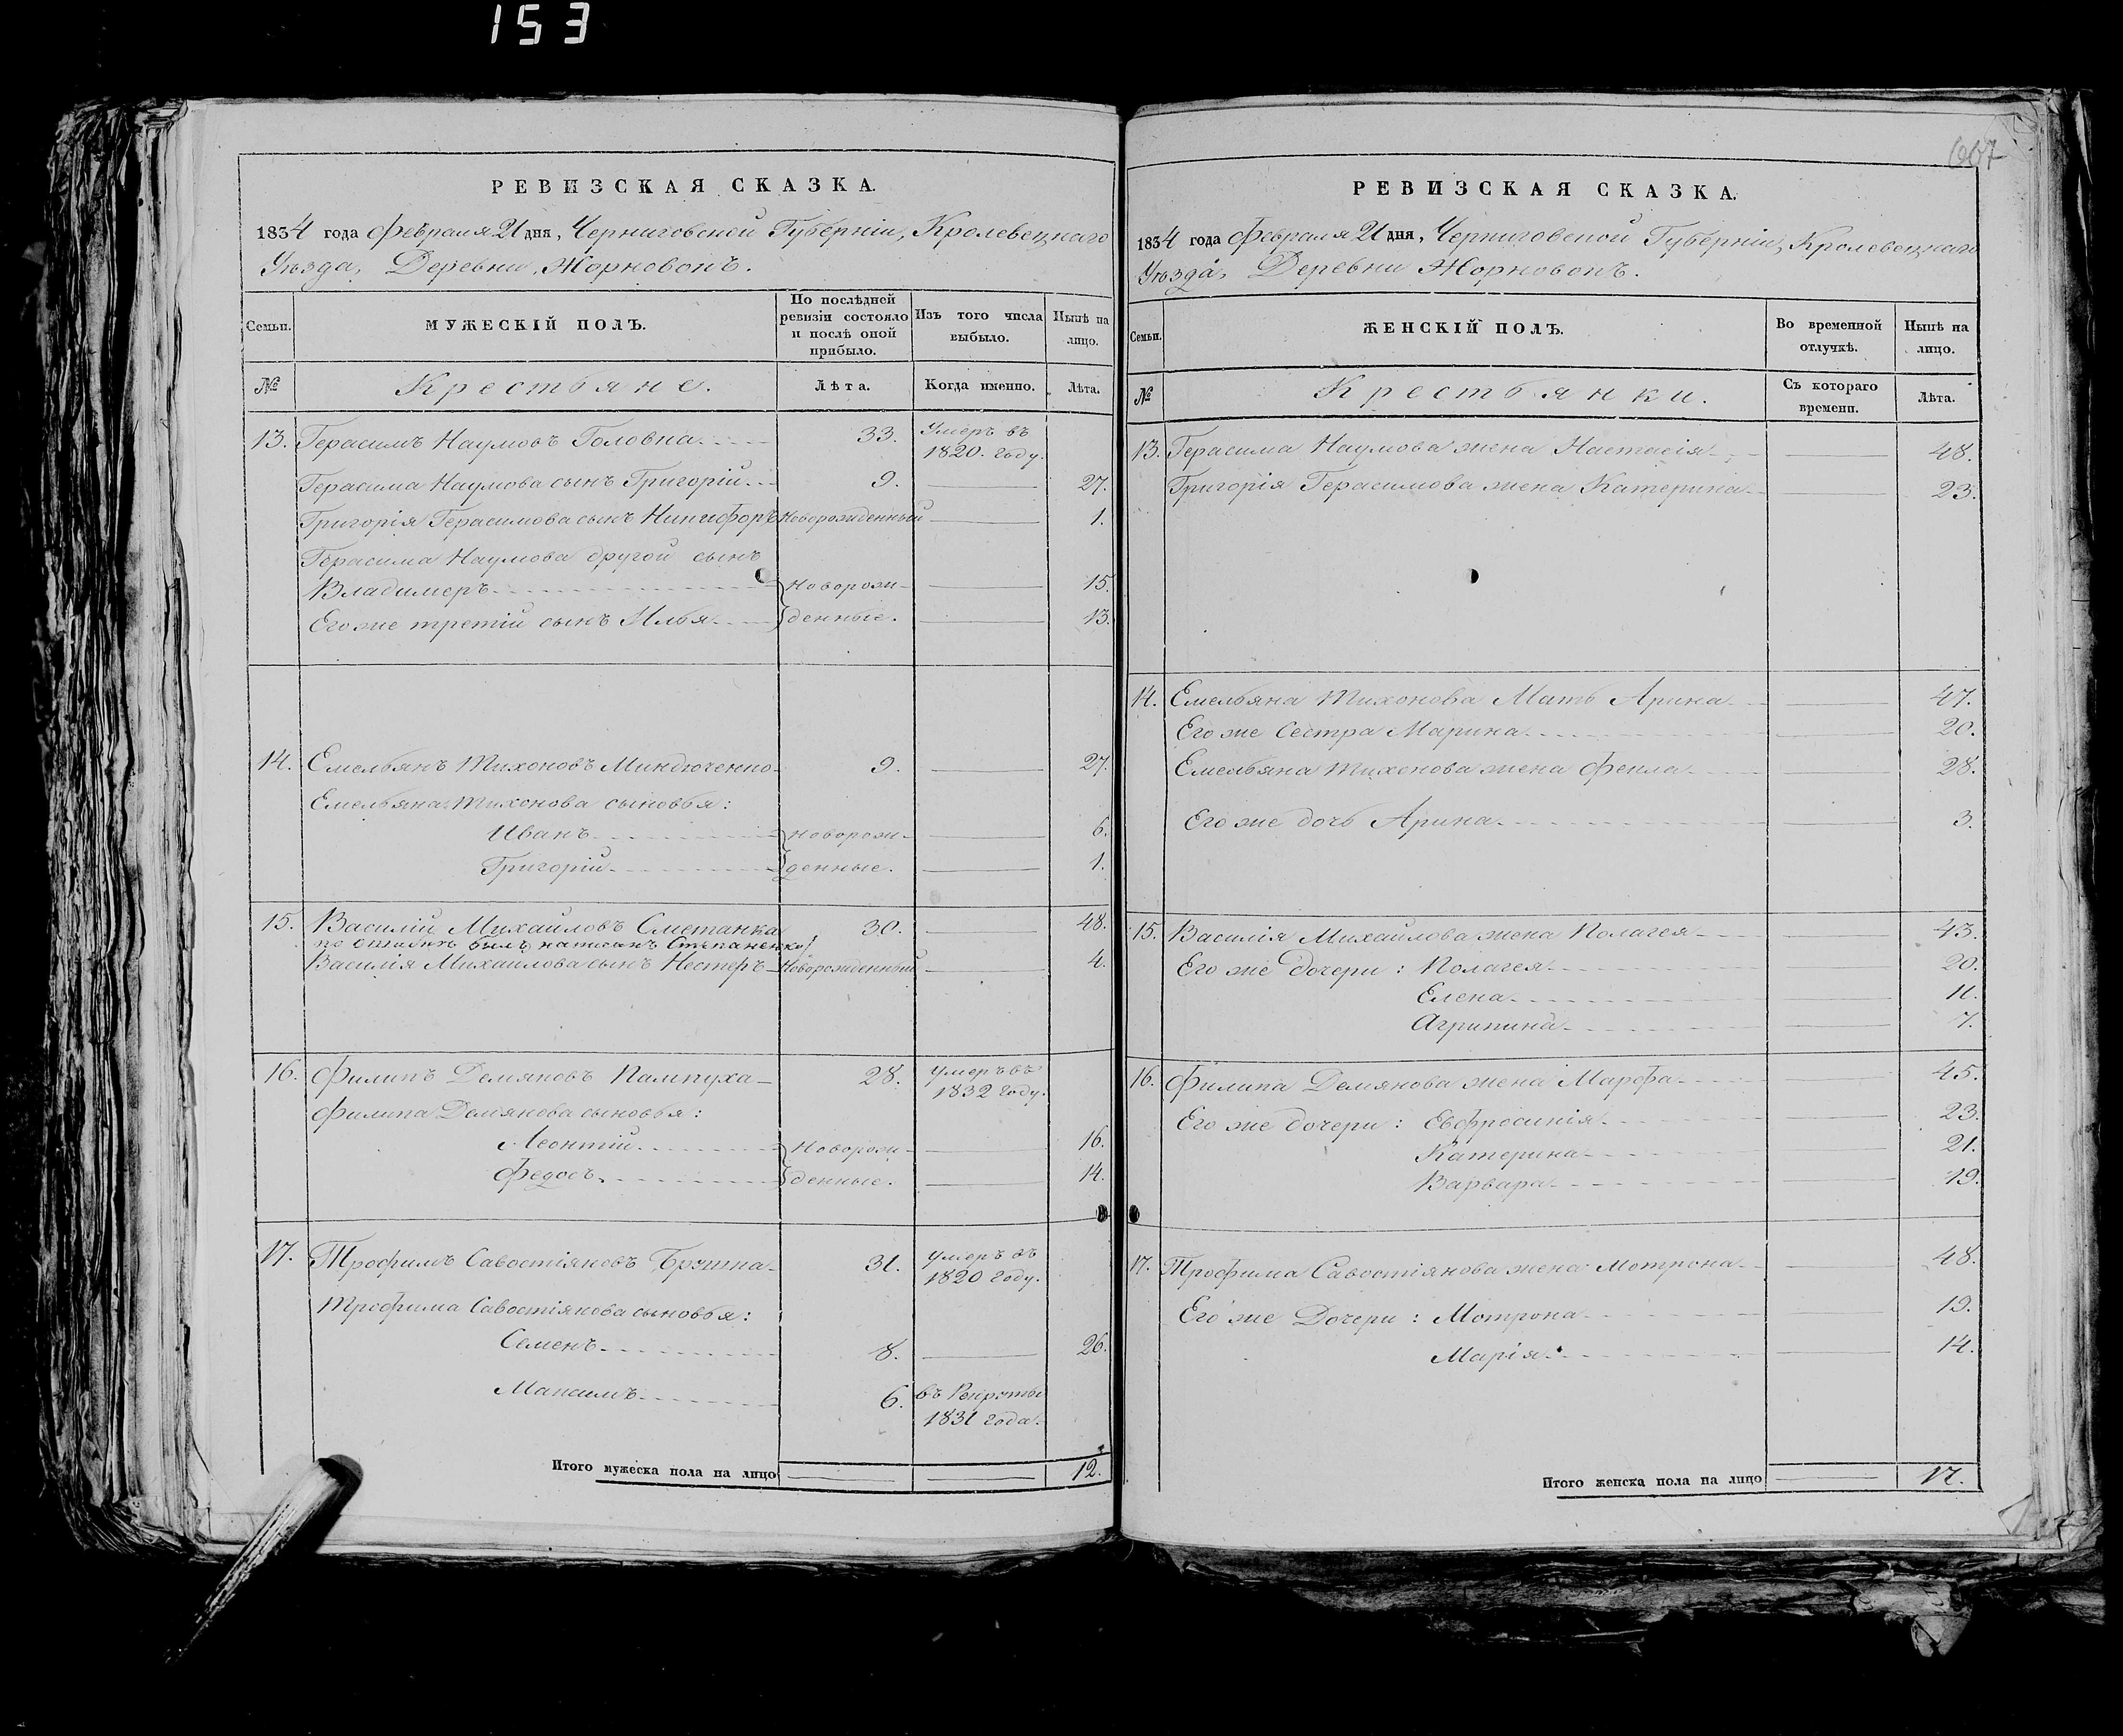 153
РЕВИЗСКАЯ СКАЗКА.
1834 года февраля 21 дня, Черниговской Губерніи, Кролевецкаго
Уѣзда, Деревни Жорновокъ.
Семьи.
МУЖЕСКІЙ ПОЛЪ.
По послѣдней ревизіи состояло и послѣ оной прибыло.
Изъ того числа выбыло.
Нынѣ на лицо.
№ Крестьяне. Лѣта. Когда именно. Лѣта.
13. Герасимъ Наумовъ Головна 33. Умеръ въ 1820. году.
Герасима Наумова сынъ Григорій 9. 27.
Григорія Герасимова сынъ Никифоръ Новорожденный 1.
Герасима Наумова другой сынъ
Владимеръ Новорож- 15.
Его же третій сынъ Илья денные. 13.
14. Емельянъ Тихоновъ Миндюченко 9. 27.
Емельяна Тихонова сыновья:
Иванъ новорож- 6.
Григорій денные. 1.
15. Василій Михайловъ Сметанка 30. 48.
по ошибкѣ былъ написанъ Степаненко/
Василія Михайлова сынъ Нестеръ Новорожденный 4.
16. Филипъ Демяновъ Пампуха 28. умеръ въ 1832 году.
Филипа Демянова сыновья:
Леонтій Новорож- 16.
Федосъ денные. 14.
17. Трофимъ Савостіяновъ 31. умеръ въ 1820 году.
Трофима Савостіянова сыновья:
Семенъ 8. 26.
Максимъ 6. въ Рекруты 1831 года.
Итого мужеска пола на лицо 12.
РЕВИЗСКАЯ СКАЗКА.
1834 года февраля 21 дня, Черниговской Губерніи, Кролевецкаго
Уѣзда, Деревни Жорновокъ.
Семьи.
ЖЕНСКІЙ ПОЛЪ.
Во временной отлучкѣ.
Нынѣ на лицо.
№ Крестьянки. Съ котораго времени. Лѣта.
13. Герасима Наумова жена Настасія 48.
Григорія Герасимова жена Катерина 23.
14. Емельяна Тихонова Мать Арина 47.
Его же Сестра Марина 20.
Емельяна Тихонова жена Фекла 28.
Его же дочь Арина 3.
15. Василія Михайлова жена Полагея 43.
Его же дочери: Полагея 20.
Елена 11.
Агрипина 7.
16. Филипа Демянова жена Марфа 45.
Его же дочери: Евфросинія 23.
Катерина 21.
Варвара 19.
17. Трофима Савостіянова жена Мотрона 48.
Его же Дочери: Мотрона 19.
Марія 14.
Итого женска пола на лицо 17.